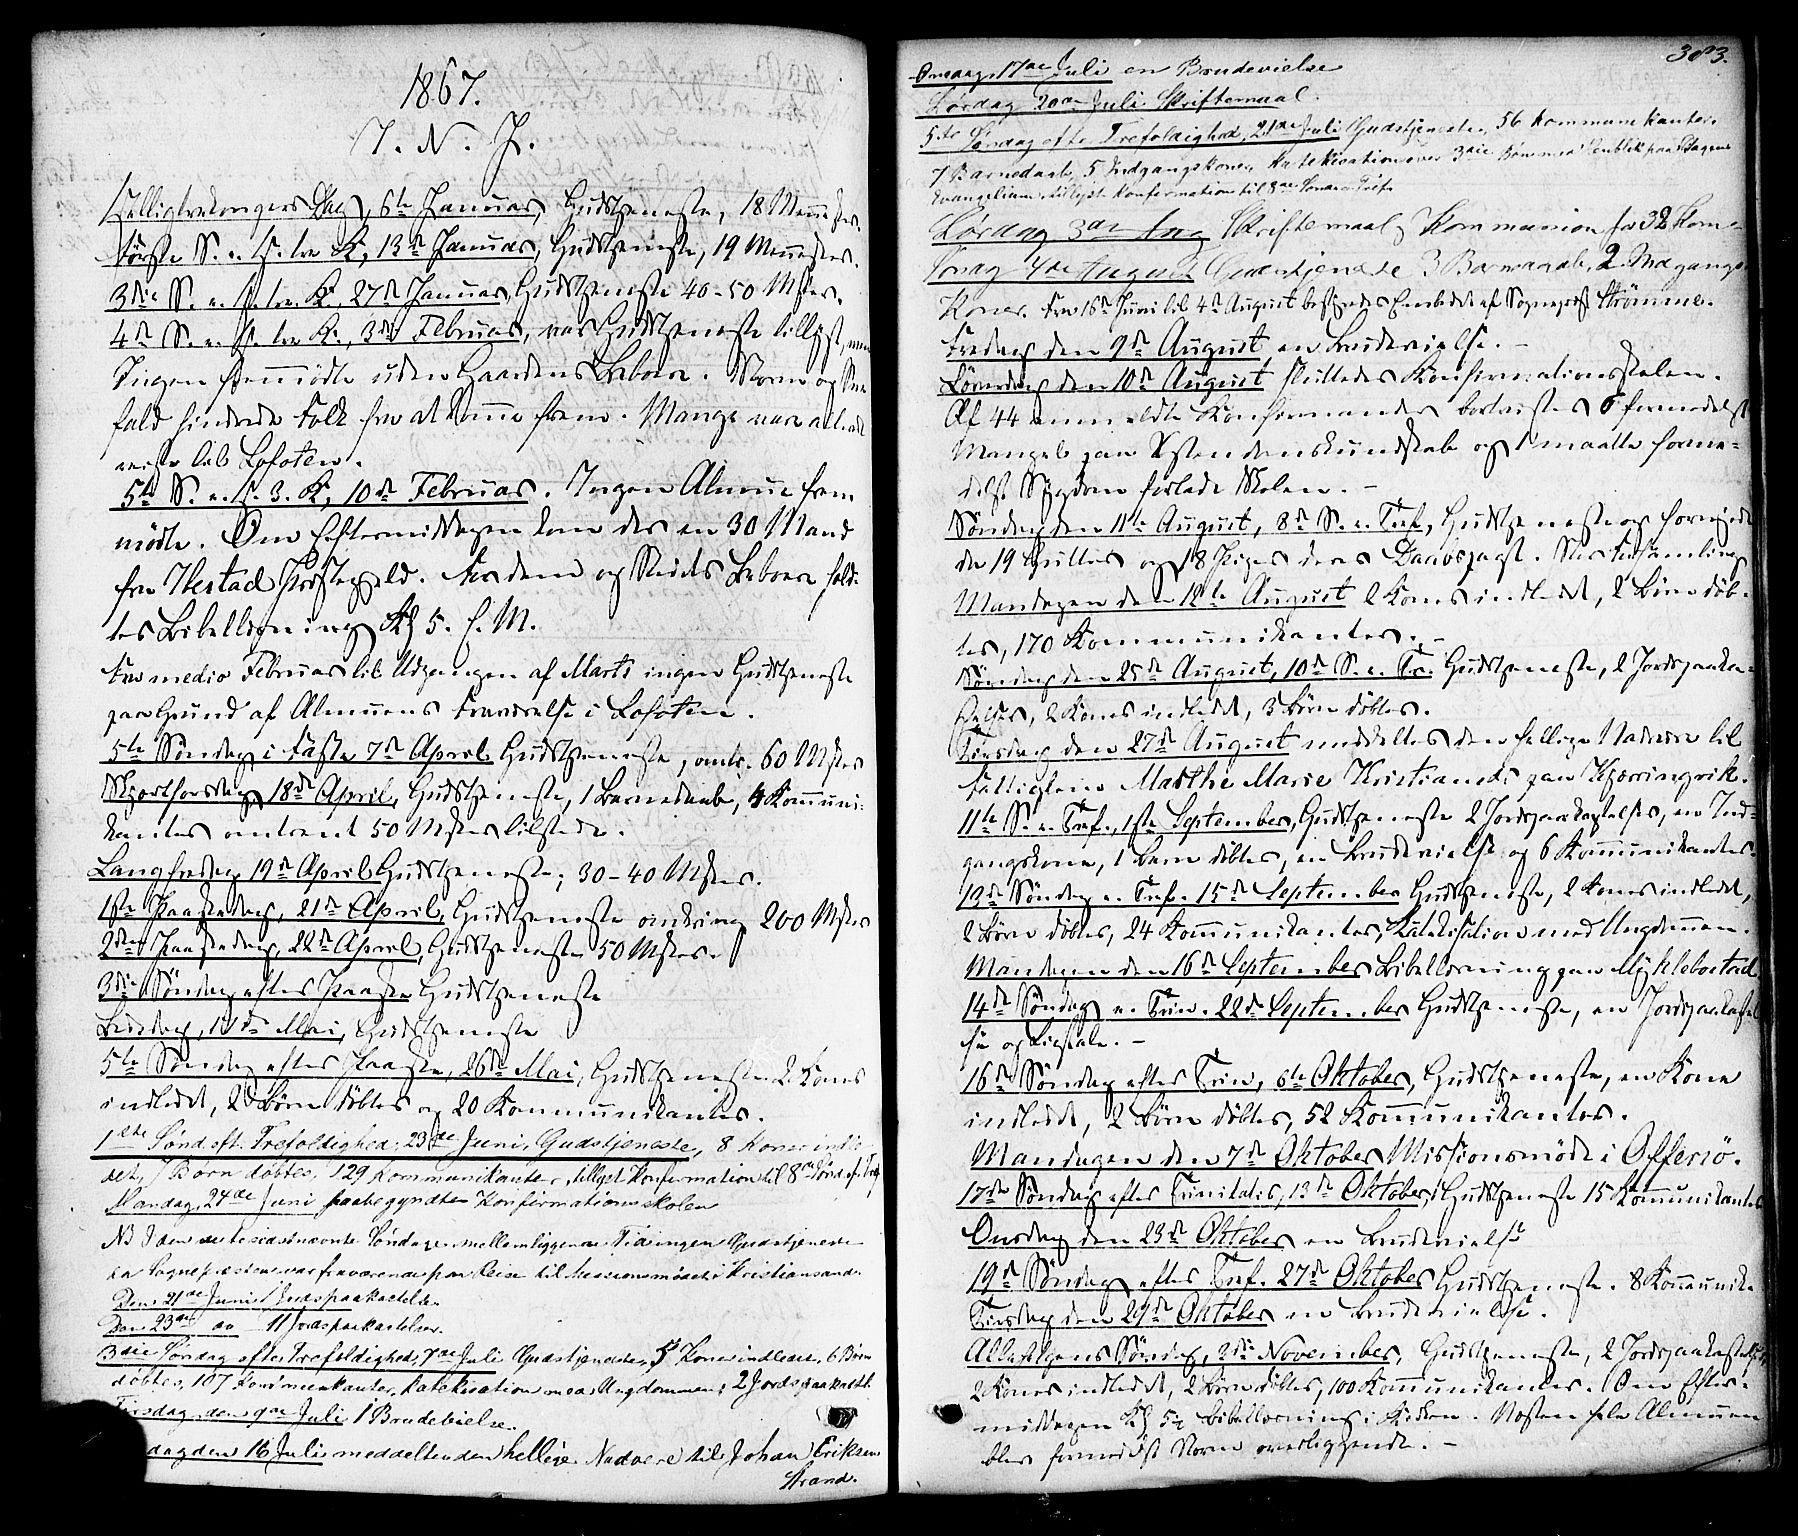 1867.
I. N. J.
Helligtrekongers Dag, 6te Januar, Gudstjeneste, 18 Mennesker.
Første S. e. H. tre K., 13de Januar, Gudstjeneste, 19 Mennesker.
3die S. e. H. tre K. 27de Januar, Gudstjeneste 40-50 Msker.
4de S. e. H. tre K., 3die Februar, var Gudstjeneste tillyst, men
Ingen fremmødte uden Gaardens Beboere. Storm og Sne
fald hindrede Folk fra at komme frem. Mange vare allerede
reiste til Lofoten.
5te S. e. H. 3. K, 10de Februar. Ingen Almue frem
mødte. Om Eftermiddagen kom der en 30 Mand
fra Ibestad Præstegjeld. For dem og Stedets Beboere hold
tes Bibellæsning Kl 5. E. M.
Fra medio Februar til Udgangen af Marts ingen Gudstjeneste
paa Grund af Almuens Fraværelse i Lofoten.
5te Søndag i Faste 7de April Gudstjeneste, omtr. 60 Msker
Skjærthorsdag 18de April, Gudstjeneste, 1 Barnedaab, 4 Kommuni-
kanter omtrent 50 Msker tilstede.
Langfredag 19de April Gudstjeneste; 30-40 Msker.
1ste Paaskedag, 21de April, Gudstjeneste omkring 200 Msker
2den Paaskedag, 22de April, Gudstjeneste 50 Msker.
3die Søndag efter Paaske Gudstjeneste
Bededag, Mai, Gudstjeneste
5te Søndag efter Paaske, 26de Mai, Gudstjeneste 2 Koner
indledet, 2 Børn døbtes og 20 Kommunikanter.
1ste Sønd. eft. Trefoldighed, 23de Juni, Gudstjeneste, 8 Koner indle
det, 7 Børn døbtes, 129 Kommunikanter, tillyst Konfirmation til 8de Sønd. ef. Tref
Mandag, 24de Juni paabegyndtes Konfirmationsskolen
NB I den de to sidstnævnte Søndage mellemliggende Tid ingen Gudstjeneste
da Sognepræsten var fraværende paa Reise til Missionsmødet i Kristiansand.
Den 21de Juni 1 Jordspaakastelse
Den 23de do 11 Jordspaakastelser.
3die Søndag efter Trefoldighed, 7de Juli Gudstjeneste, 5 Koner indledet, 6 Børn
døbtes, 107 Kommunikanter, Katekisation med Ungdommen; 2 Jordspaakastel.
Tirsdag den 9de Juli 1 Brudevielse.
dag den 16 Juli meddeltes den hellige Nadvere til Johan Eriksen
Strand.
383.
Onsdag 17de Juli en Brudevielse
Lørdag 20de Juli Skriftemaal.
5te Søndag efter Trefoldighed, 21de Juli Gudstjeneste, 56 Kommunikanter,
7 Barnedaab, 5 Indgangskoner, Katekisation over 3die Bøn med Henblik paa Dagens
Evangelium, tillyst Konfirmation til 8de Søndag e. Tref.
Lørdag 3de Aug Skriftemaal og Kommunion for 32 Kom-
Søndag 4de August Gudstjeneste 3 Barnedaab, 2 Indgangs
Koner. Fra 16de Juni til 4de August bestyredes Embedet af Sogneprest Strømme.
Fredag den 9de August en Brudevielse. —
Lørdag den 10de August sluttedes Konfirmationsskolen.
Af 44 anmeldte Konfirmander bortvistes 6 formedelst
Mangel paa Kristendomskundskab og 1 maatte forme-
delst Sygdom forlade Skolen. —
Søndag den 11te August, 8de S. e. Tref, Gudstjeneste og fornyede
de 19 Gutter og 18 Piger deres Daabspagt. Stor Forsamling
Mandagen den 12te August 2 Koner indledet, 2 Børn døb-
tes, 170 Kommunikanter. —
Søndag den 25de August, 10de S. e. Tr. Gudstjeneste, 2 Jordspaaka-
stelser, 2 Koner indledet, 3 Børn døbtes.
Tirsdag den 27de August meddeltes den hellige Nadvere til
Fattiglem Marthe Marie Kristiansd. paa Kjørringvik.
11te S. e. Tref., 1ste September, Gudstjeneste 2 Jordspaakastelser, en Ind-
gangskone, 1 Barn døbtes, en Brudevielse og 6 Kommunikanter.
13de Søndag e. Tref. 15de September Gudstjeneste, 2 Koner indledet,
2 Børn døbtes, 24 Kommunikanter, Katekisation med Ungdommen.
Mandagen den 16de September Bibellæsning paa Myklebostad
14de Søndag e. Trin. 22de September Gudstjeneste, en Jordspaakastel
se og Ligtale. —
16de Søndag efter Trin, 6te Oktober, Gudstjeneste, en Kone
indledet, 2 Børn døbtes, 52 Kommunikanter.
Mandagen den 7de Oktober Missionsmøde i Offersø.
17de Søndag efter Trinitatis, 13de Oktober, Gudstjeneste 15 Kommunikanter
Onsdag den 23de Oktober en Brudevielse
19de Søndag efter Tref. 27de Oktober Gudstjeneste. 8 Kommunik.
Tirsdag den 29de Oktober en Brudevielse.
Allehelgens Søndag, 3die November, Gudstjeneste, 2 Jordspaakastelser,
2 Koner indledet, 2 Børn døbtes, 100 Kommunikanter. Om Efter-
middagen Kl 5½ Bibellæsning i Kirken. Næsten hele Almuen
blev formedelst Storm overliggende. —